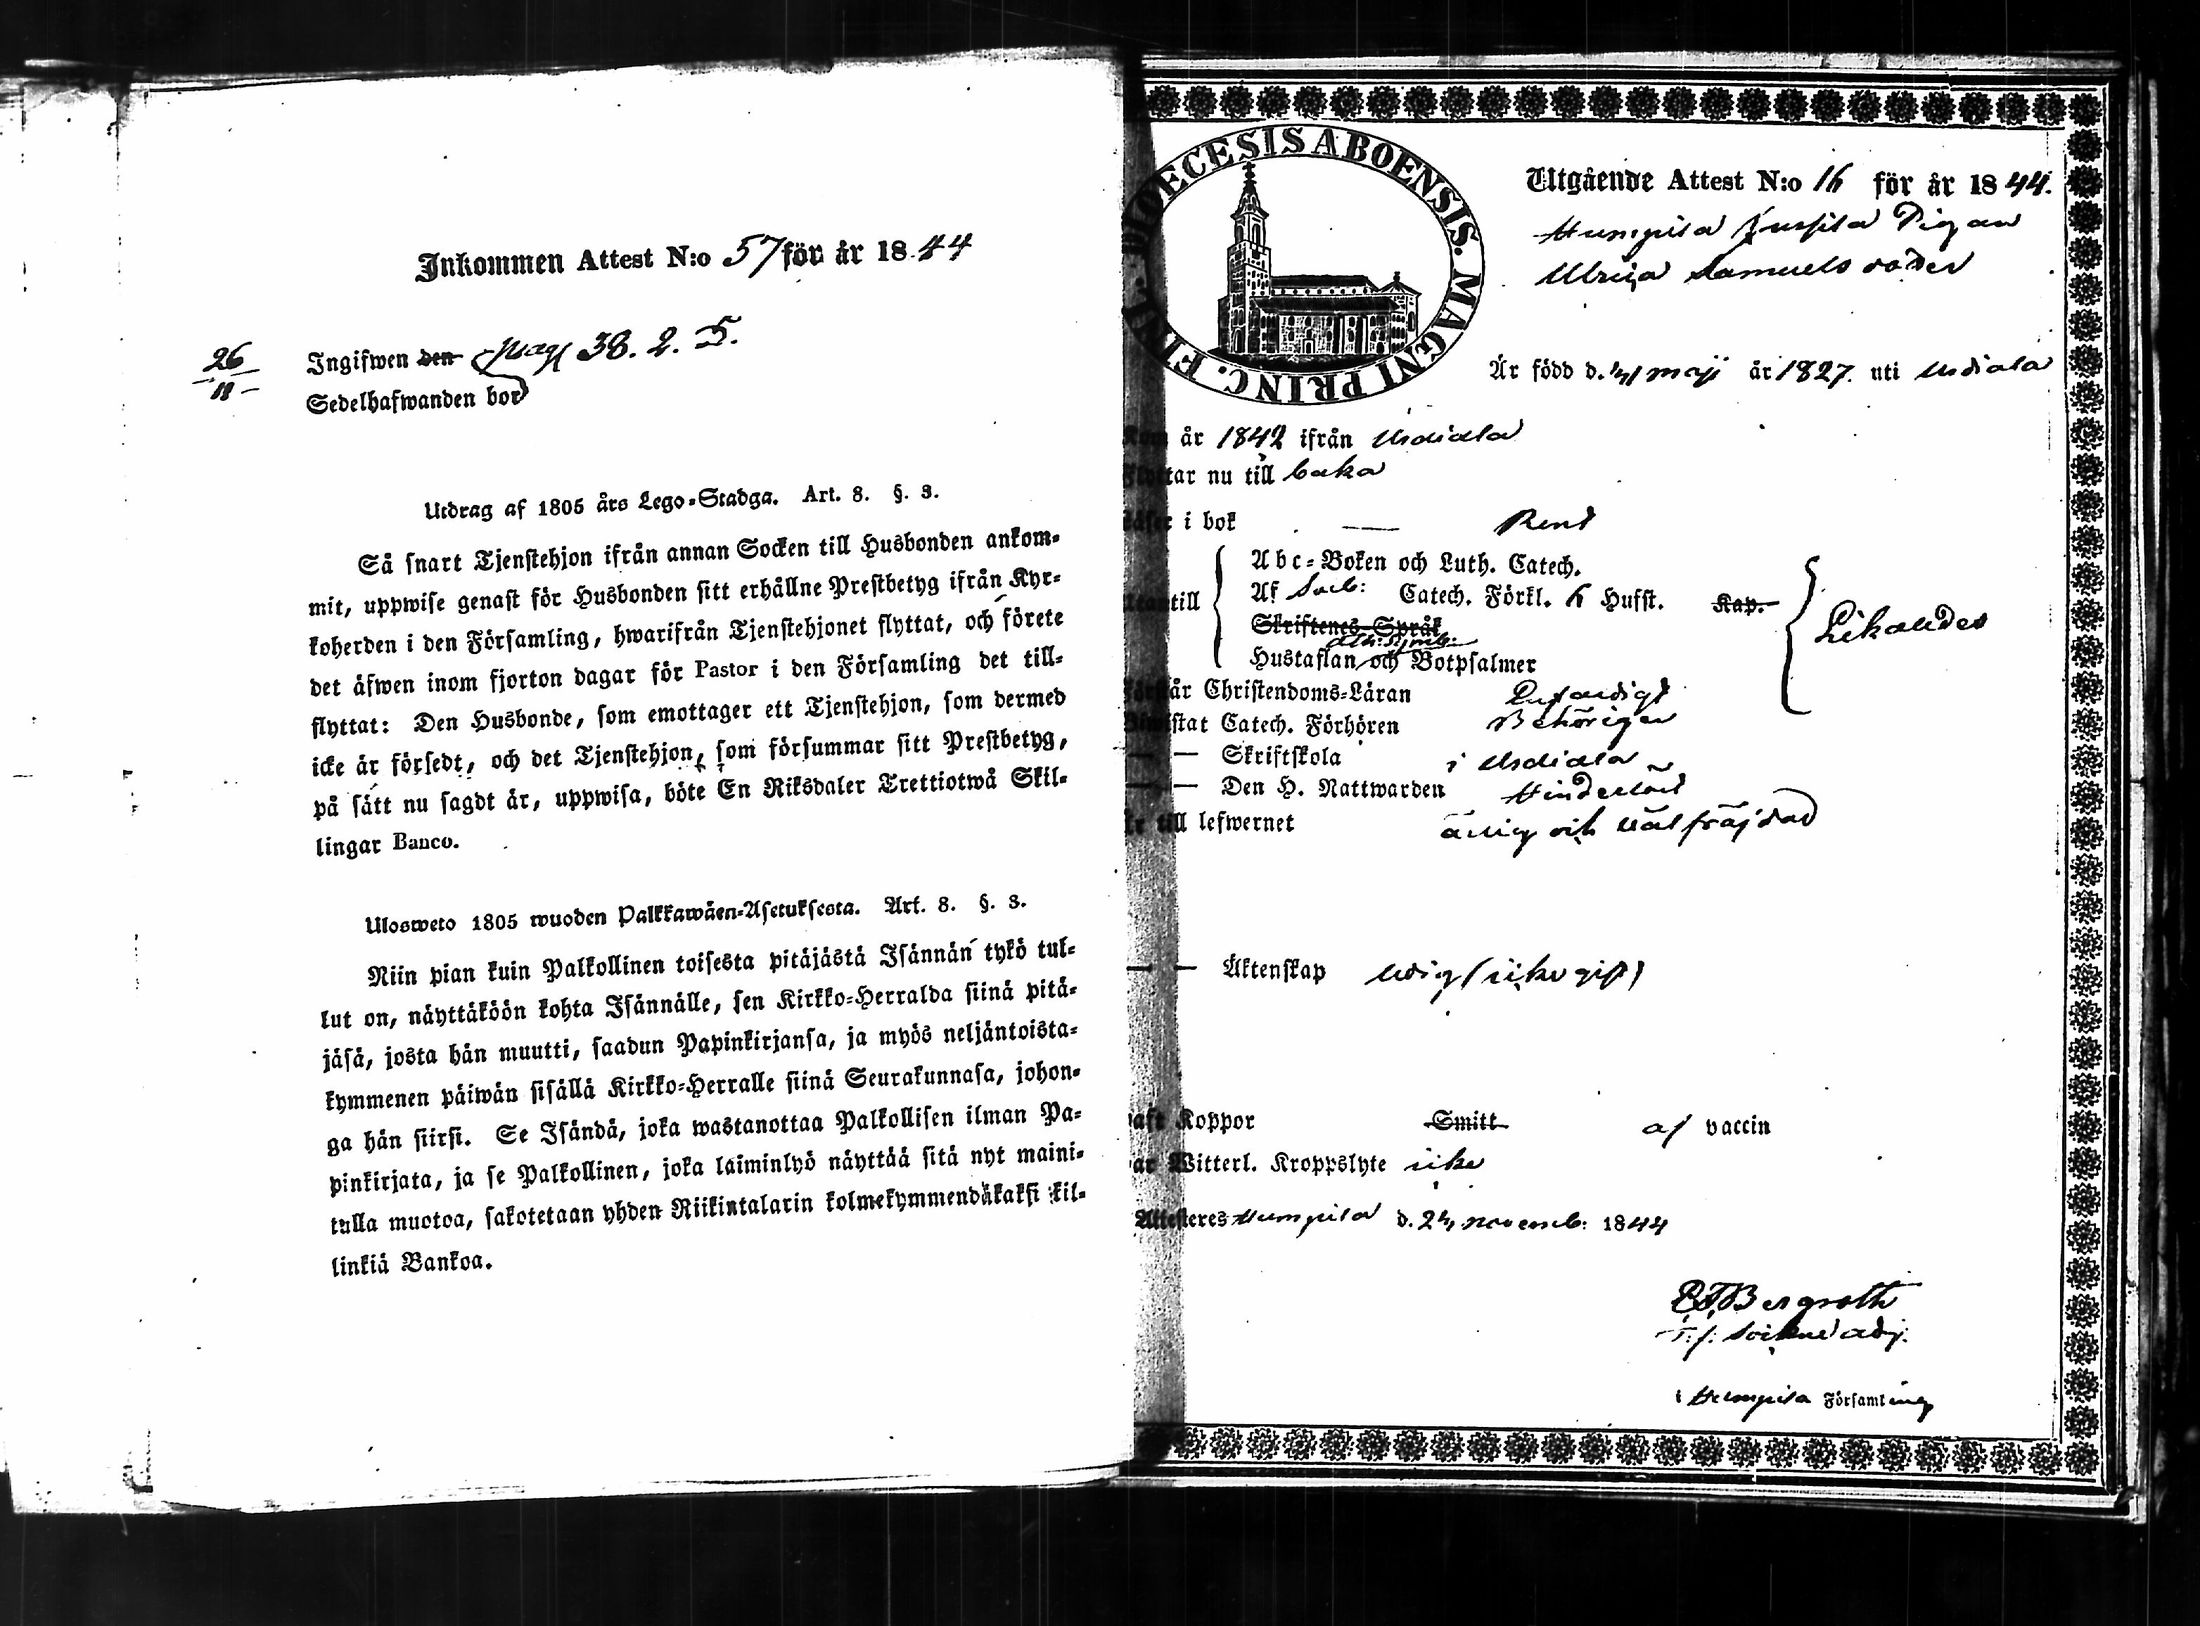 Inkommen Attest N:o 57 för år 1844
26
Ingifwen den pag 38. 2. 5.
11
Sedelhafwanden bor
Utdrag af 1805 års Lego-Stadga. Art. 8. §. 3.
Så snart Tjenstehjon ifrån annan Socken till Husbonden ankom-
mit, uppwise genast för Husbonden sitt erhållne Prestbetyg ifrån Kyr-
koherden i den Församling, hwarifrån Tjenstehjonet flyttat, och förete
det äfwen inom fjorton dagar för Pastor i den Församling det till-
flyttat: Den Husbonde, som emottager ett Tjenstehjon, som dermed
icke är försedt, och det Tjenstehjon, som försummar sitt Prestbetyg,
på sätt nu sagdt är, uppwisa, böte En Riksdaler Trettiotwå Skil-
lingar Banco.
Ulosweto 1805 wuoden Palkkawäen-Asetuksesta. Art. 8. §. 3.
Niin pian kuin Palkollinen toisesta pitäjästä Isännän tykö tul-
lut on, näyttäköön kohta Isännälle, sen Kirkko-Herralda siinä pitä-
jäsä, josta hän muutti, saadun Papinkirjansa, ja myös neljäntoista-
kymmenen päiwän sisällä Kirkko-Herralle siinä Seurakunnasa, johon-
ga hän siirsi. Se Isändä, joka wastanottaa Palkollisen ilman Pa-
pinkirjata, ja se Palkollinen, joka laiminlyö näyttää sitä nyt maini-
tulla muotoa, sakotetaan yhden Riikintalarin kolmekymmendäkaksi kil-
linkiä Bankoa.
DIOECESIS ABOENSIS. MAGNI PRINC. FINL.
Utgående Attest N:o 16 för år 1844.
Humpila Pigan
Ulrica Samuels doter
Är född d. maji år 1827. uti Urdiala
Kom år 1842 ifrån Urdiala
Flyttar nu till baka
Läser i bok — Rent
Abc-Boken och Luth. Catech.
Utantill Af Catech. Förkl. Husst. Kap. Likaledes
Skriftenes Språk
Ath: Symb:
Hustaflan och Botpsalmer
Förstår Christendoms-Läran
Bimistat Catech. Förhören Behörigen
— — Skriftskola i Urdiala
— — Den H. Nattwarden
Är till lefwernet ärlig och välfräjdad
— — Äktenskap ledig (icke gift)
Haft Koppor Smitt af vaccin
Har Witterl. Kroppslyte icke
Attesteres Humpila d. 24 novemb: 1844
Bergroth
T. f. Sockne adj.
i Humpila Församling